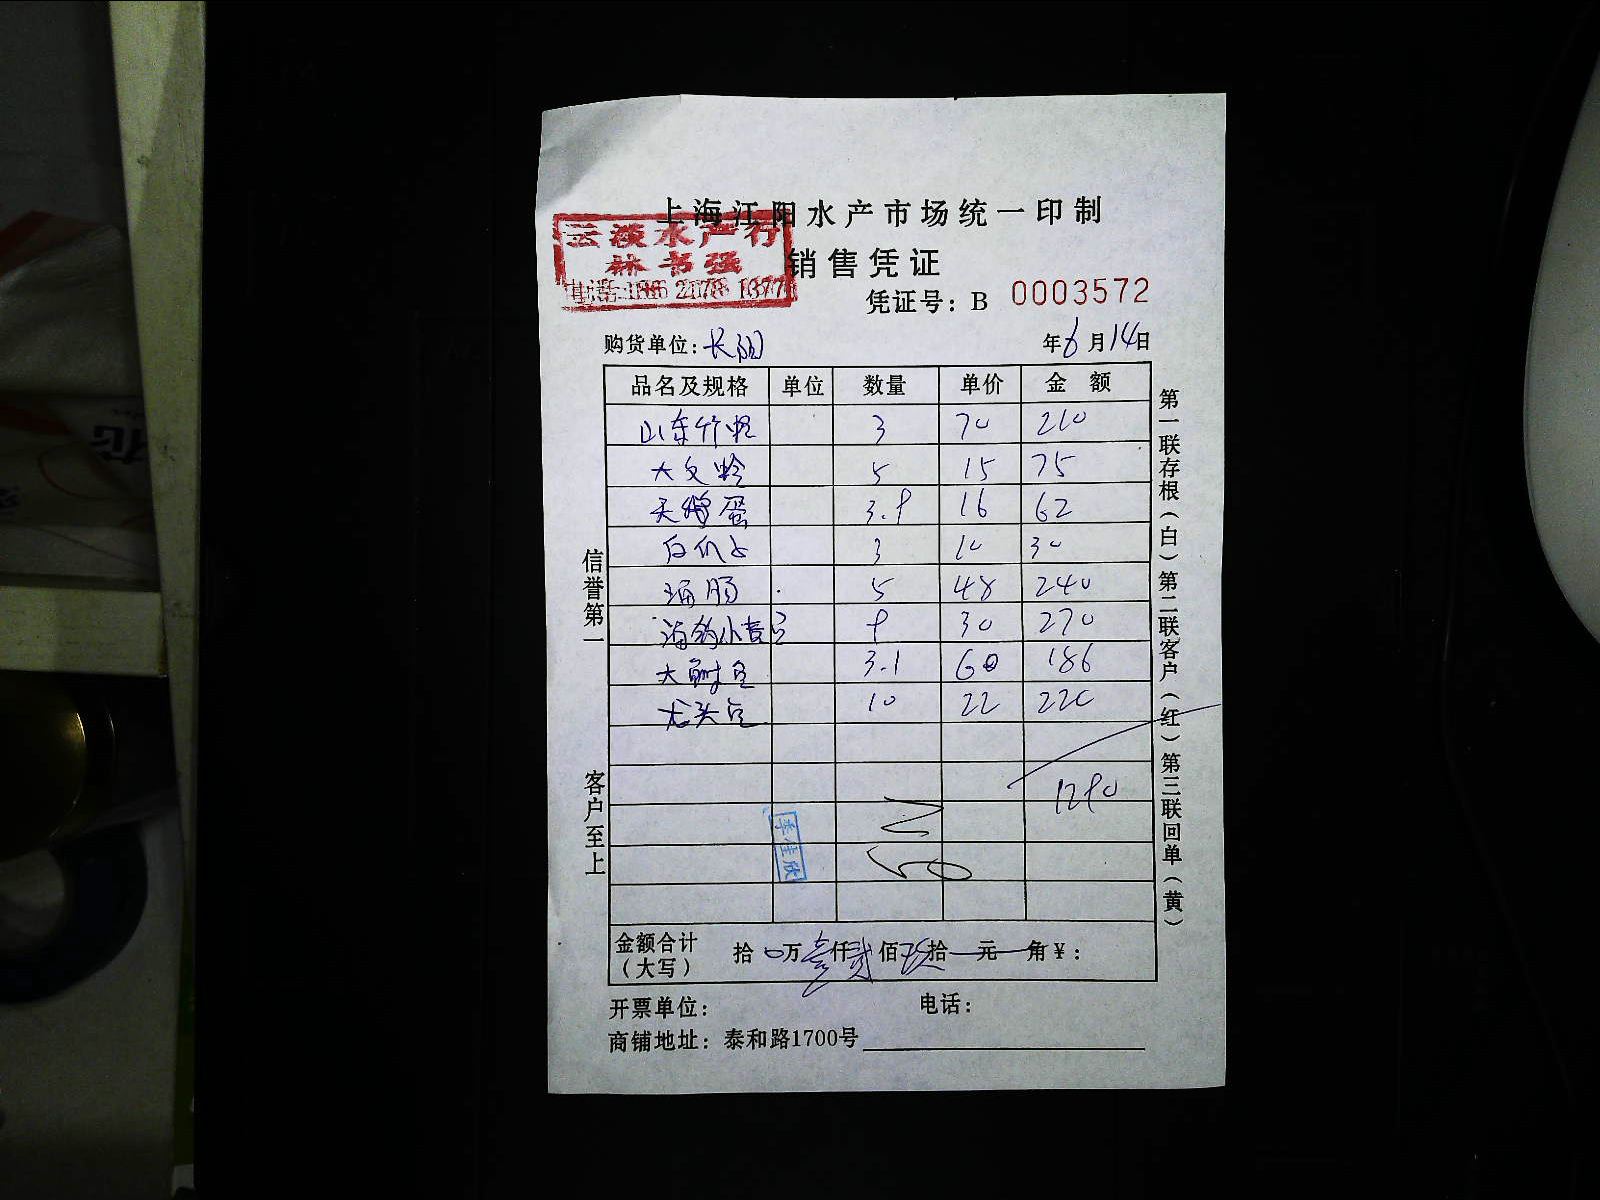 上海江阳水产市场统一印制
云淡水产行
林书强
销售凭证
凭证号：B 0003572
购货单位：长阳 年6月14日
品名及规格 单位 数量 单价 金额
山东竹蛏 3 70 210
大文蛤 5 15 75
天鹅蛋 3.9 16 62
白爪子 3 10 30
海肠 5 48 240
海钩小黄鱼 9 30 270
大鲥鱼 3.1 60 186
龙头鱼 10 22 220
1290
李佳欣
金额合计（大写） 拾0万壹仟贰佰玖拾一元一角¥：
开票单位： 电话：
商铺地址：泰和路1700号
信誉第一 客户至上
第一联存根（白）第二联客户（红）第三联回单（黄）